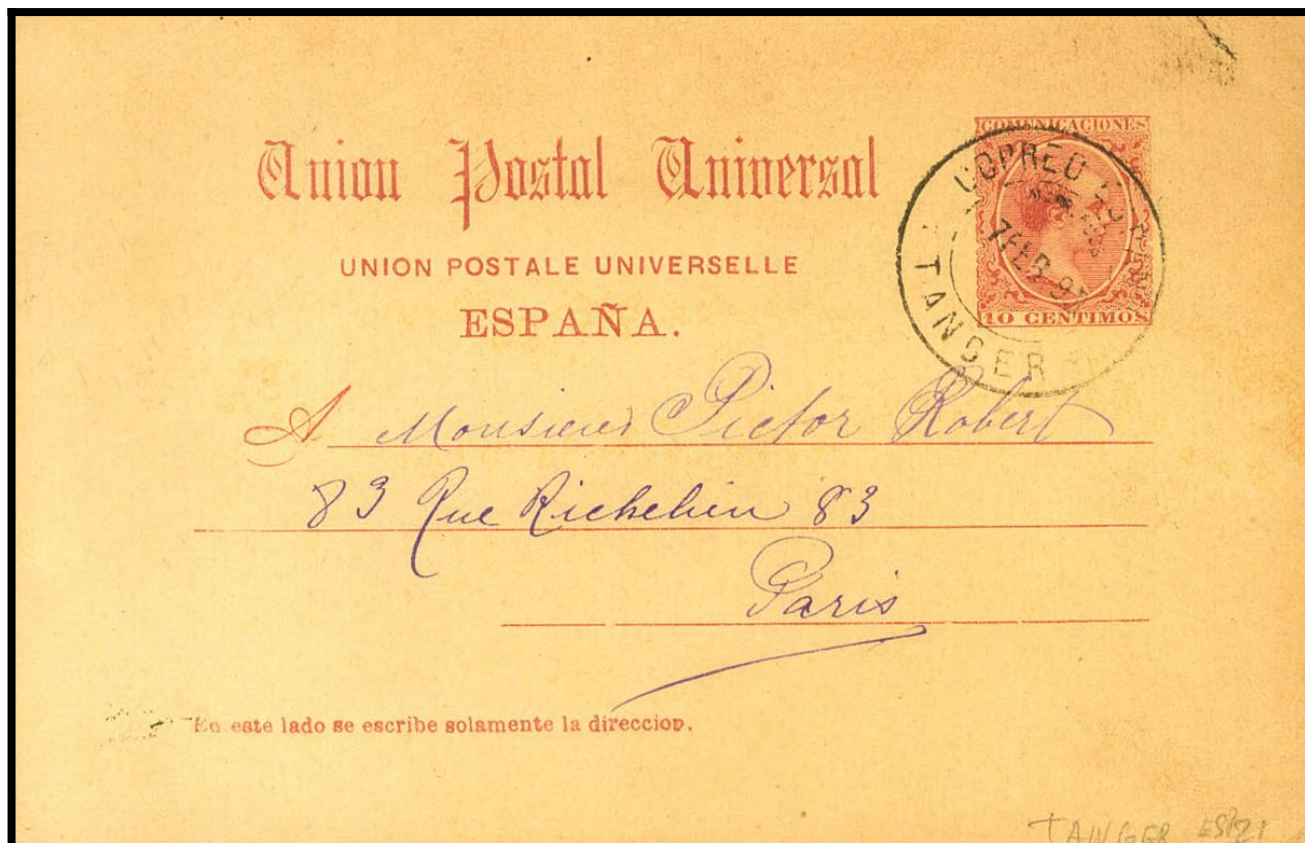 Union Postal Universal
UNION POSTALE UNIVERSELLE
ESPAÑA.
COMUNICACIONES
10 CENTIMOS
CORREO
7 FEB 9
TANGER
A Monsieur Pictor Robert
83 Rue Richelieu 83
Paris
En este lado se escribe solamente la direccion.
TANGER